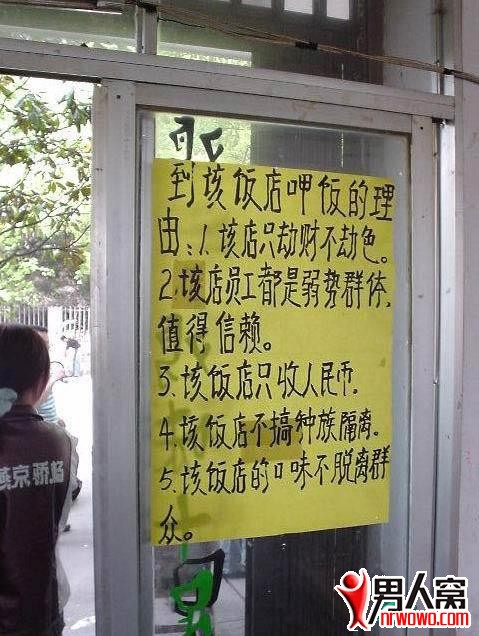 到该饭店呷饭的理
由:1.该店只劫财不劫色。
2.该店员工都是弱势群体,
值得信赖。
3.该饭店只收人民币.
4.该饭店不搞种族隔离.
5.该饭店的口味不脱离群
众。
燕京骄杨
男人窝
nrwowo.com